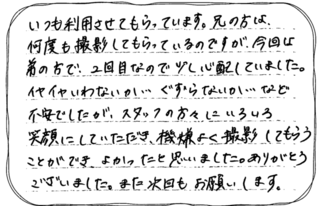 いつも利用させてもらっています。兄の方は、
何度も撮影してもらっているのですが、今回は
弟の方で、2回目なので少し心配していました。
イヤイヤいわないかい… ぐずらないかい… など
不安でしたが、スタッフの方々にいろいろ
笑顔にしていただき、機嫌よく撮影してもらう
ことができ、よかったと思いました。ありがとう
ございました。また次回もお願いします。